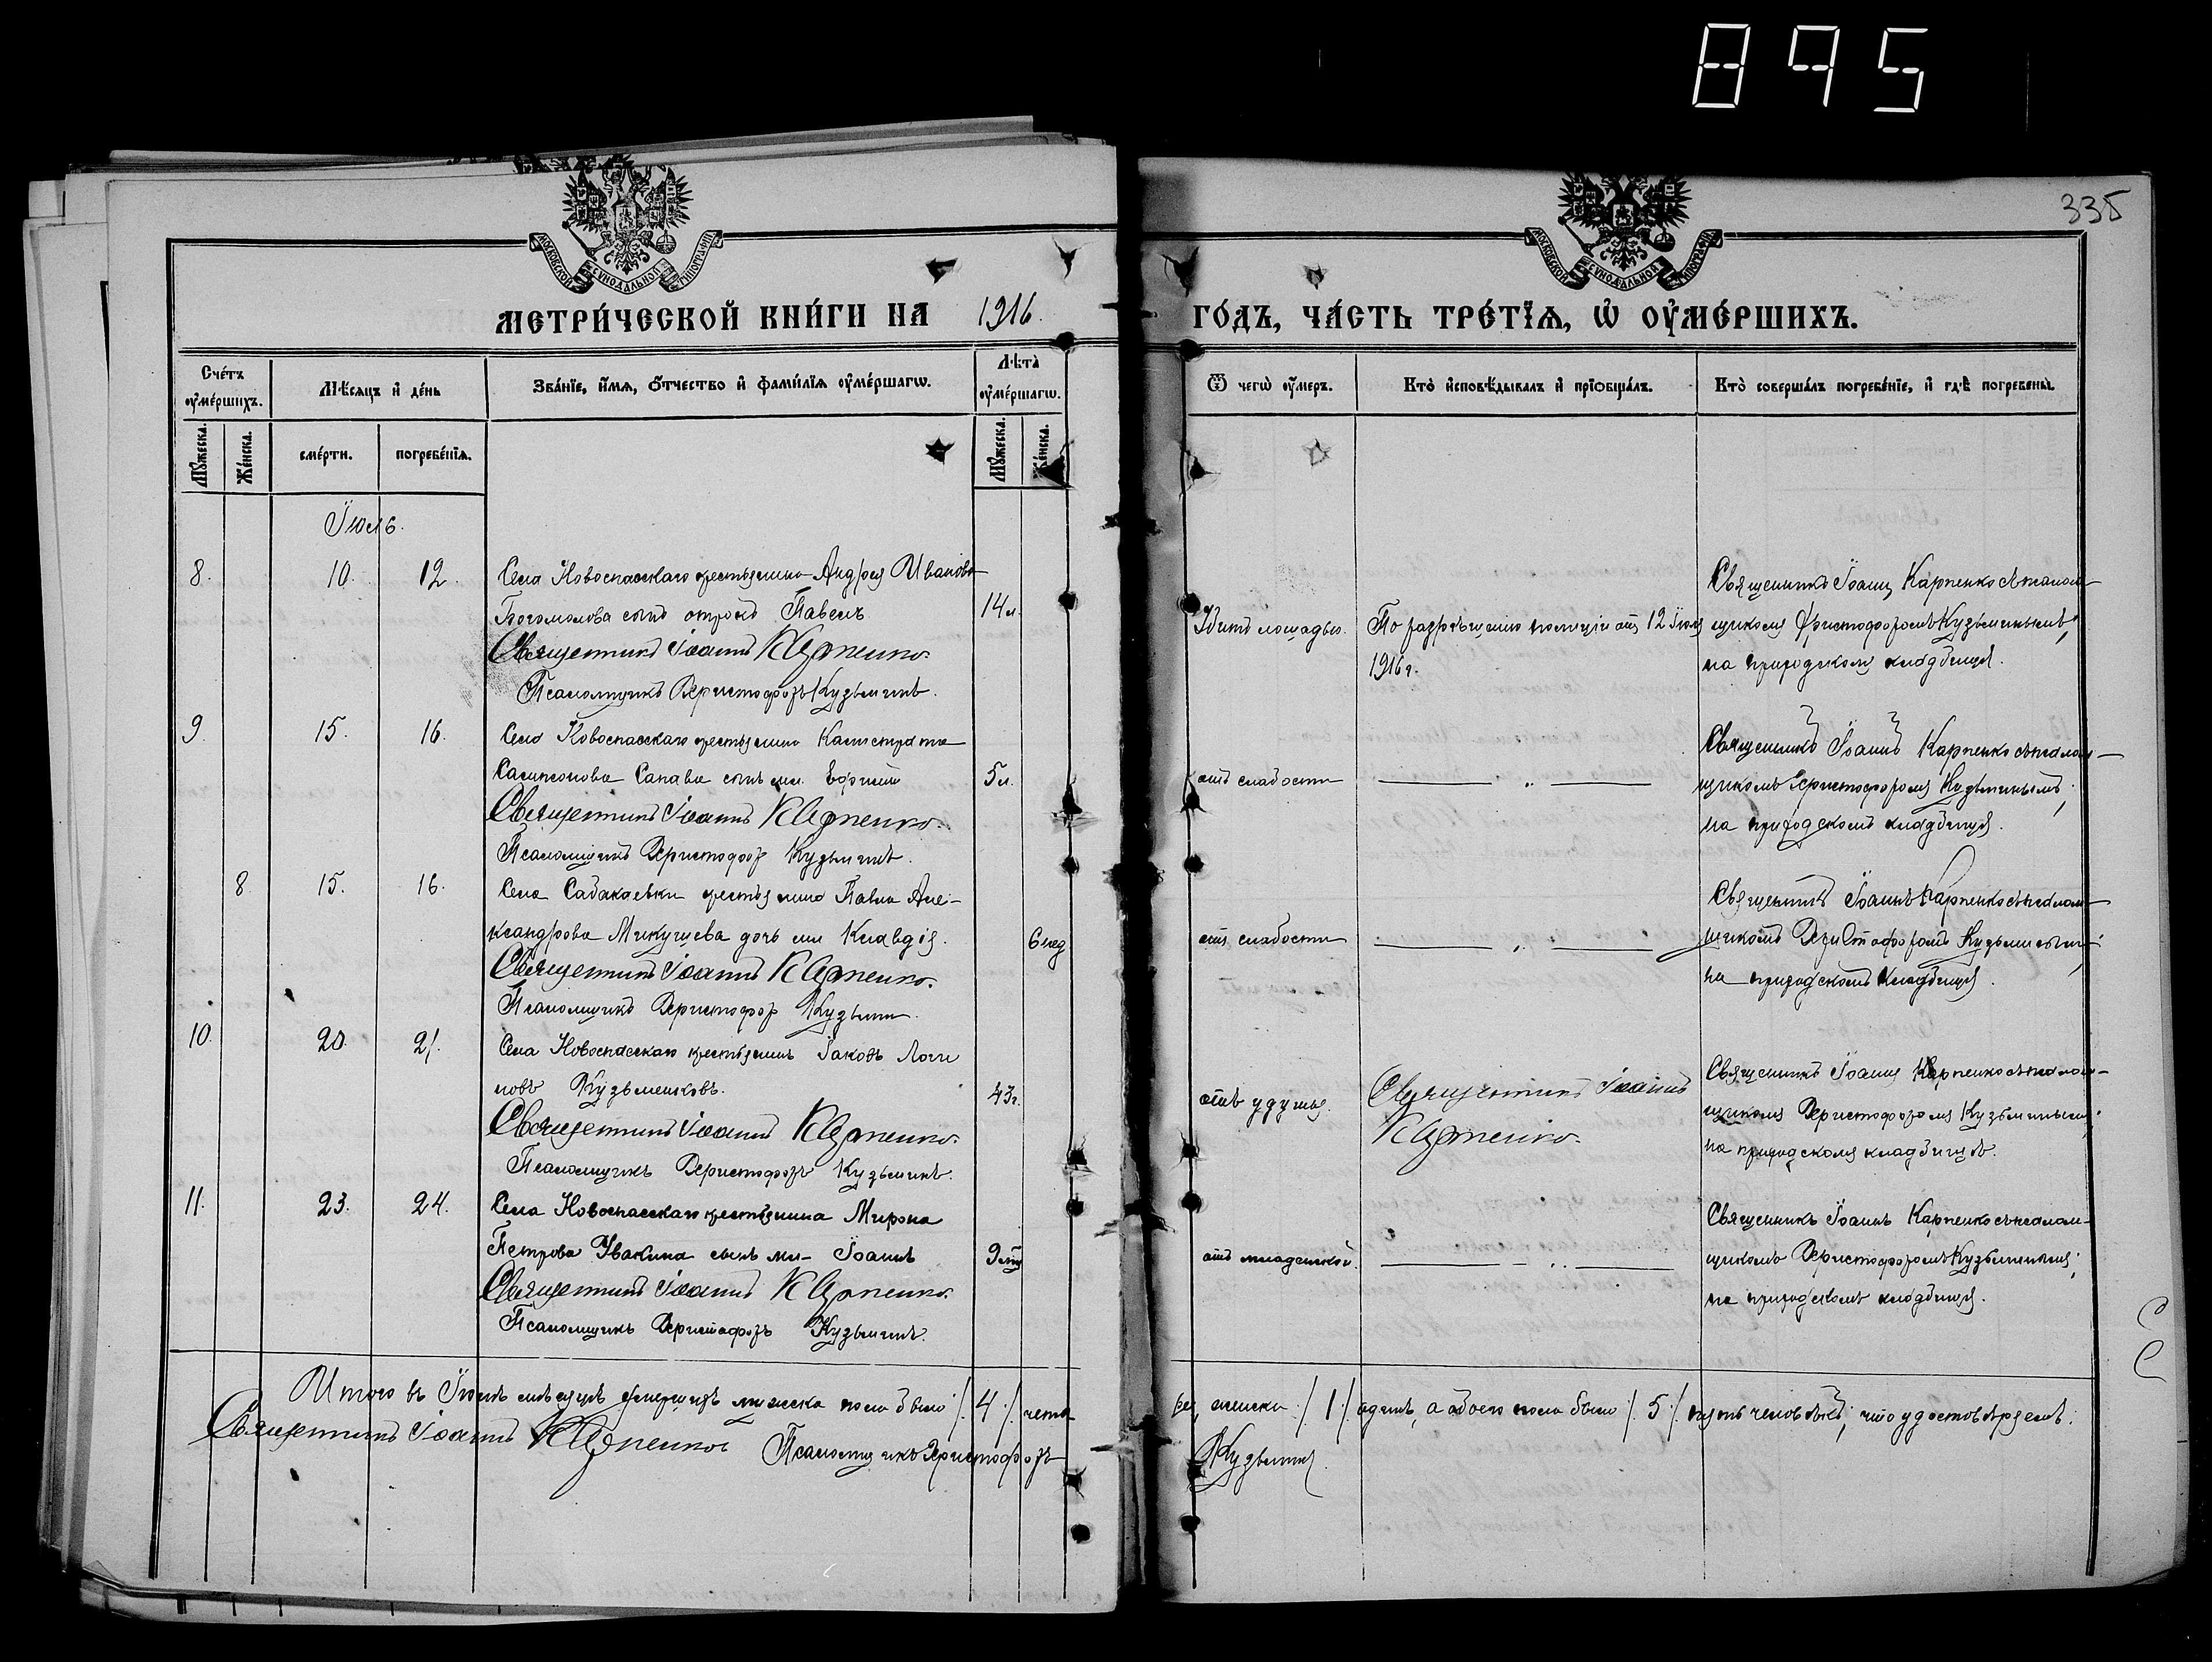 895
335
МОСКОВСКОЙ СѴНОДАЛЬНОЙ ТИПОГРАФІИ
МОСКОВСКОЙ СѴНОДАЛЬНОЙ ТИПОГРАФІИ
МЕТРИ́ЧЕСКОЙ КНИ́ГИ НА 1916.
ГО́ДЪ, ЧА́СТЬ ТРЕ́ТІѦ, Ѡ ОУМЕ́РШИХЪ.
Счéтъ оумéршихъ.
Мѣ́сяцъ и дéнь
Звáніе, и́мя, óтчество и фамѝлія оумéршагѡ.
Лѣ́та оумéршагѡ.
Ѿ чегѡ̀ оу́меръ.
Ктò исповѣ́дывалъ и пріѡбщáлъ.
Ктò совершáлъ погребéніе, и гдѣ̀ погребены̀.
Мꙋ́жеска.
Жéнска.
смéрти.
погребéнія.
Мꙋ́жеска.
Жéнска.
Іюль.
8. 10. 12. Села Новоспасскаго крестьянина Андрея Иванова
Богомолова сынъ отрокъ Павелъ 14 л.
Священникъ Іоаннъ Карпенко.
Псаломщикъ Христофоръ Кузьминъ.
Убитъ лошадью.
По разрѣшенію полиціи отъ 12 Іюля
1916 г.
Священникъ Іоаннъ Карпенко съ псалом-
щикомъ Христофоромъ Кузьминымъ;
на приходскомъ кладбищѣ.
9. 15. 16. Села Новоспасскаго крестьянина Калистрата
Сампсонова сынъ мл. Ефрем 5 л.
Священникъ Іоаннъ Карпенко.
Псаломщикъ Христофор Кузьминъ.
отъ слабости — „ —
Священникъ Іоаннъ Карпенко съ псалом-
щикомъ Христофоромъ Кузьминымъ;
на приходскомъ кладбищѣ.
8 15. 16. Села Сабакаевки крестьянина Павла Але-
ксандрова Микушева дочь мл Клавдія. 6 нед
Священникъ Іоаннъ Карпенко.
Псаломщикъ Христофор Кузьмин.
отъ слабости — „ —
Священникъ Іоаннъ Карпенко съ псалом-
щикомъ Христофоромъ Кузьминымъ;
на приходскомъ кладбищѣ.
10. 20. 21. Села Новоспасскаго крестьянинъ Іаковъ Логги
новъ Кузьменковъ. 43 г.
Священникъ Іоаннъ Карпенко.
Псаломщикъ Христофоръ Кузьминъ.
отъ удушья.
Священникъ Іоаннъ
Карпенко.
Священникъ Іоаннъ Карпенко съ псалом-
щикомъ Христофоромъ Кузьминымъ;
на приходскомъ кладбищѣ.
11. 23. 24. Села Новоспасскаго крестьянина Мирона
Петрова Увакина сынъ мл- Іоаннъ
Священникъ Іоаннъ Карпенко.
Псаломщикъ Христофоръ Кузьминъ.
отъ младенской. — „ —
Священникъ Іоаннъ Карпенко съ псалом-
щикомъ Христофоромъ Кузьминымъ;
на приходскомъ кладбищѣ.
Итого въ Іюлѣ мѣсяцѣ умершихъ мужеска пола было /. 4 ./ четы
ре, женска ./ 1 /. одинъ, а обоего пола было /. 5 ./ пять человѣкъ; что удостовѣряемъ:
Священникъ Іоаннъ Карпенко Псаломщикъ Христофоръ
Кузьминъ.